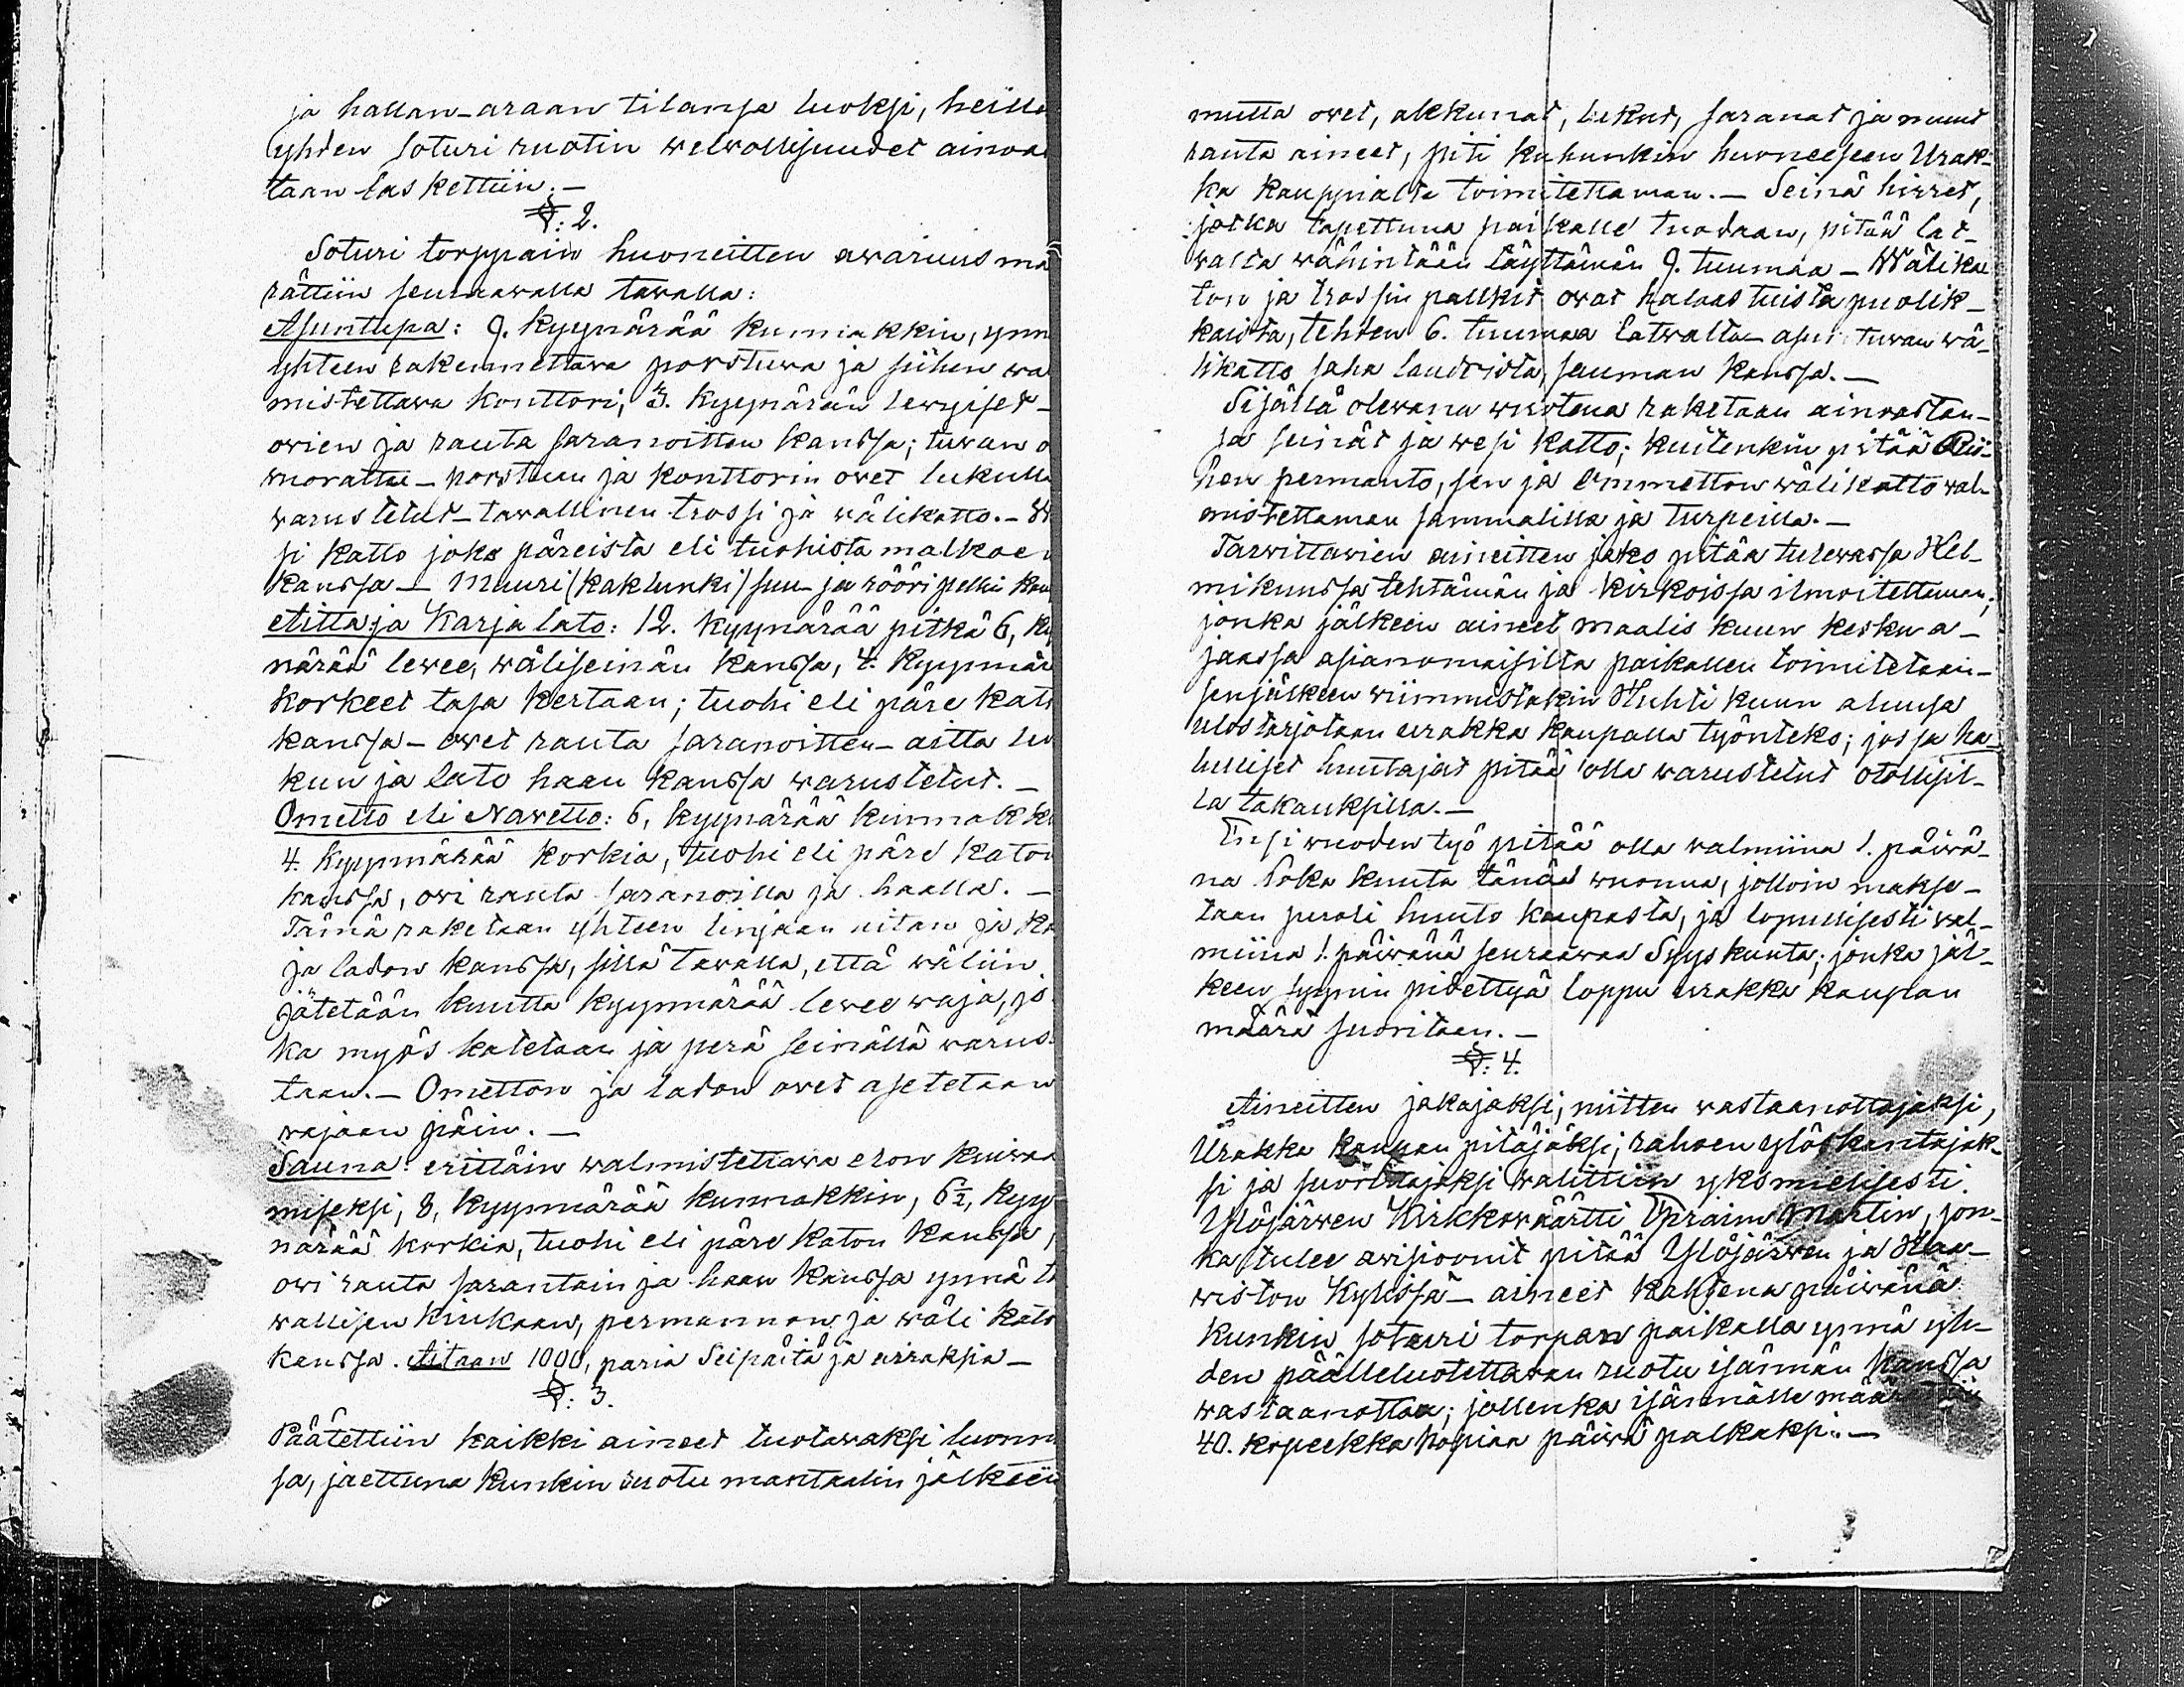 ja hallan-araan tilansa luoksi, heille
yhden soturi ruotin welwollisuudet ainoa
taan laskettiin. —
§: 2.
Soturi torppain huoneitten awaruus mä
rättiin seuraawalla tawalla:
Asuntupa: 9. kyynärää kummakkin, ynn
yhteen rakennettawa porstuwa ja siihen wa
mistettawa konttori, 3. kyynärän lewyiset —
owien ja rauta saranoitten kanssa; tuwan o
wuorattu — porstuan ja konttorin owet lukulla
warustetut — tawallinen trossi ja wälikatto. —
si katto joko päreistä eli tuohista malkoen
kanssa — Muuri (kaklunki) suu- ja rööri pelli
Aitta ja Karja lato: 12. kyynärää pitkä 6, ky
närää lewee, wäliseinän kanssa, 4. kyynnär
korkeet tasa kertaan; tuohi eli päre kato
kanssa — owet rauta saranoitten — aitta lu
kun ja lato haan kanssa warustetut. —
Ometto eli Navetto: 6, kyynärää kummakki
4. kyynnärää korkia, tuohi eli päre katon
kanssa, owi rauta saranoilla ja haalla. —
Tämä raketaan yhteen linjaan aitan ja Ka
ja ladon kanssa, sillä tawalla, että wäliin
jätetään kuutta kyynnärää lewee waja, jo
ka myös katetaan ja perä seinällä warus
taan. — Ometton ja ladon owet asetetaan
wajaan päin. —
Sauna: erittäin walmistettawa elon kuiwaa
miseksi, 8, kyynnärää kummakkin, 6½, kyy
närää korkia, tuohi eli päre katon kanssa,
owi rauta sarantain ja haan kanssa ynnä ta
wallisen kiukaan, permannon ja wäli kato
kanssa. Aitaan 1000, paria Seipäitä ja airaksia —
§: 3.
Päätettiin kaikki aineet tuotawaksi luonn
sa, jaettuna kunkin ruotu mantaalin jälkeen
mutta owet, akkunat, lukut, saranat ja muut
rauta aineet, piti kuhunkin huoneeseen Urak-
ka kauppialta toimitettaman. — Seinä hirret,
jotka tapettuna paikalle tuodaan, pitää lat-
walta wähintään täyttämän 9. tuumaa — Wälika
ton ja trossin palkit owat halaastuista puolik-
kaista, tehden 6. tuumaa latwalta — asuin tuwan wä-
likatto saha laudoista, sauman kanssa. —
Sijällä olewana wuotena raketaan ainoastan-
sa seinät ja wesi katto; kuitenkin pitää Rii-
hen permanto, sen ja Ommetton wälikatto wal-
mistettaman sammalilla ja turpeilla. —
Tarwittawien aineitten jako pitää tulewassa Hel-
mikuussa tehtämän ja kirkoissa ilmoitettaman;
jonka jälkeen aineet maalis kuun kesku a-
jassa asianomaisilta paikallen toimitetaan —
senjälkeen wiimmistäkin Huhti kuun alussa
ulostarjotaan urakka kaupalla työnteko; jossa ha-
lulliset huutajat pitää olla warustetut otollisil-
la takauksilla. —
Ensi wuoden työ pitää olla walmiina 1. päiwä-
nä Loka kuuta tänä wuonna, jolloin makse-
taan puoli huuto kaupasta, ja lopullisesti wal-
miina 1. päiwänä seuraawaa Syys kuuta; jonka jäl-
keen syynin pidettyä loppu urakka kaupan
määrä suoritaan. —
§: 4.
Aineitten jakajaksi, niitten wastaanottajaksi,
Urakka kaupan pitäjäksi, rahaen ylöskantajak-
si ja suorittajaksi walittiin yksmielisesti
Ylöjärwen Kirkkowäärtti Efraim Martin, jon-
ka tulee awisioonit pitää Ylöjärwen ja
wiston Kylissä — aineet kahtena päiwänä
kunkin soturi torpan paikalla ynnä yh-
den päälleluotettawan ruotu isännän kanssa
wastaanottaa; jollenka isännälle määrättiin
40. kopeekka hopiaa päiwä palkaksi. —